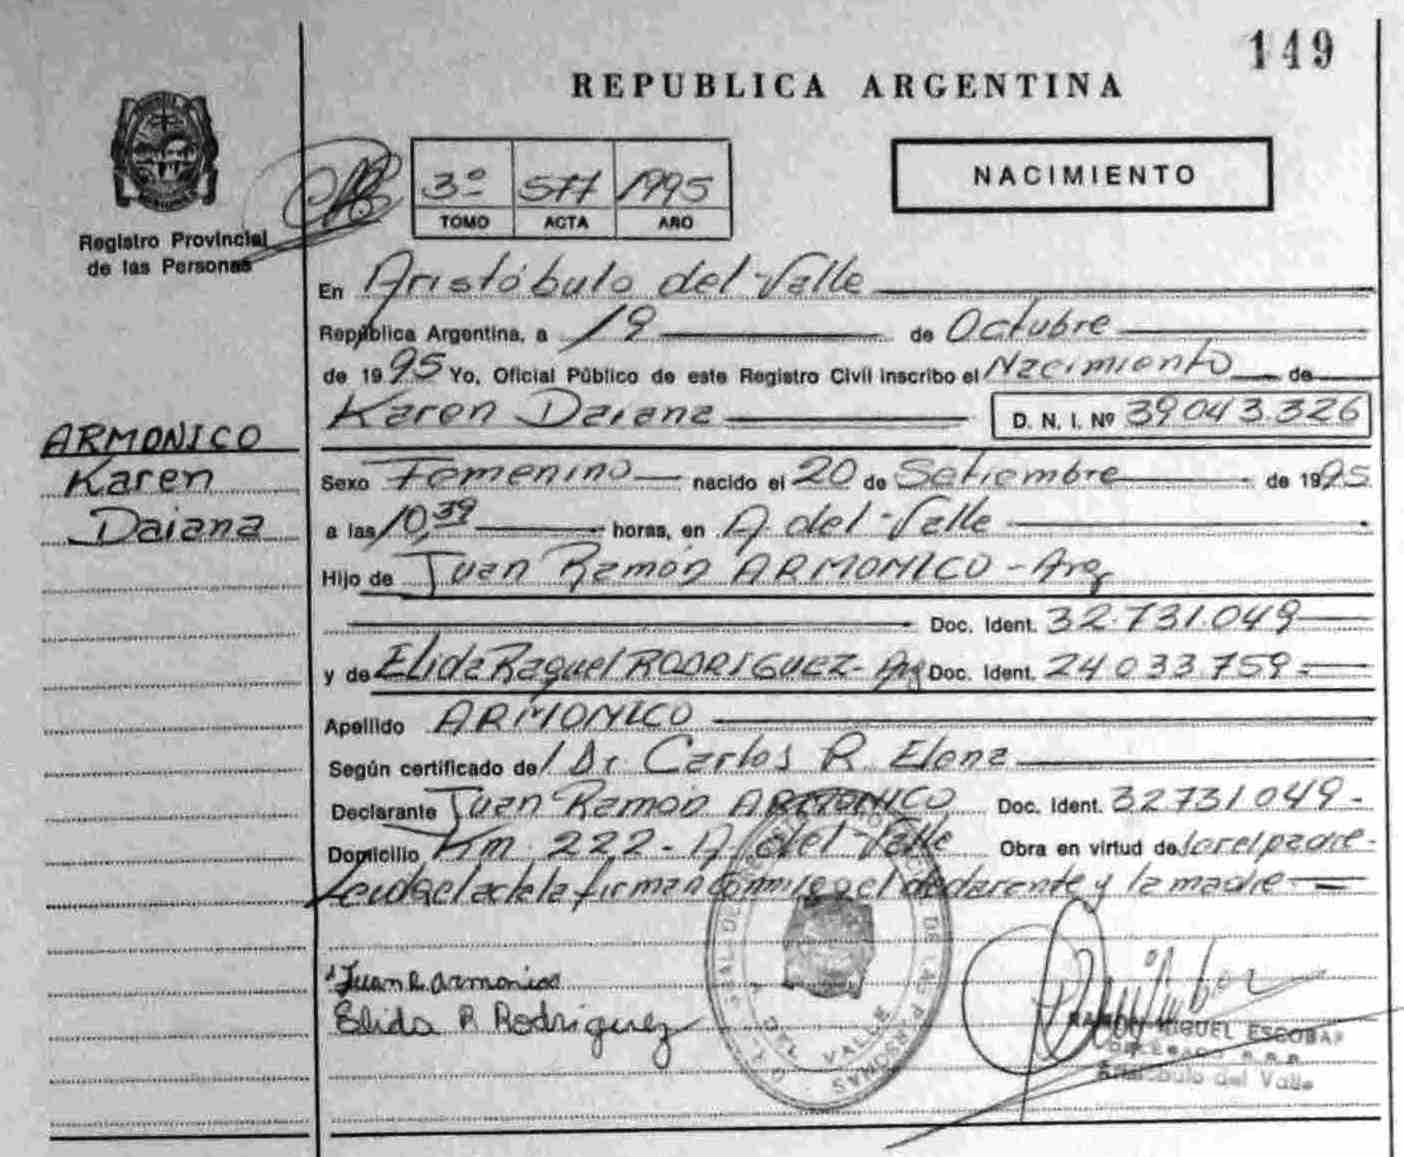 149
REPUBLICA ARGENTINA
Registro Provincial
de las Personas
3º 577 1995
TOMO ACTA AÑO
NACIMIENTO
En Aristóbulo del Valle
República Argentina, a 19 de Octubre
de 1995 Yo, Oficial Público de este Registro Civil inscribo el Nacimiento de
Karen Daiana D. N. I. Nº 39043.326
ARMONICO
Karen
Daiana
Sexo Femenino nacido el 20 de Setiembre de 1995
a las 10,39 horas, en A. del Valle
Hijo de Juan Ramón ARMONICO - Arg
Doc. Ident. 32.731.049
y de Elida Raquel RODRIGUEZ - Arg Doc. Ident. 24 033.759 =
Apellido ARMONICO
Según certificado de / Dr Carlos R. Elena
Declarante Juan Ramón ARMONICO Doc. Ident. 32731049 -
Domicilio Km 222 - A. del Valle Obra en virtud de ser el padre -
Leida el acta la firman conmigo el declarante y la madre
Juan R armonico
Elida R Rodriguez
DE LAS PERSONAS
DEL VALLE
RAMON MIGUEL ESCOBAR
DELEGADO R.P.P.
Aristobulo del Valle